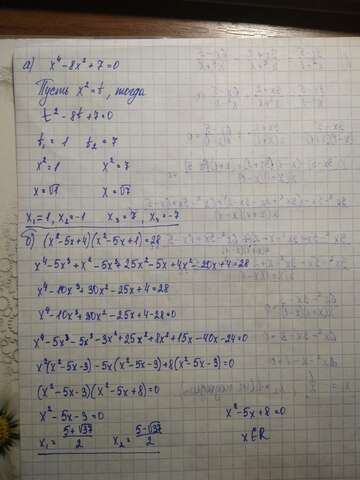 а) x⁴-8x²+7=0
Пусть x²=t, тогда
t²-8t+7=0
t₁=1 t₂=7
x²=1 x²=7
x=√1 x=√7
x₁=1, x₂=-1 x₃=7, x₄=-7
б) (x²-5x+4)(x²-5x+1)=28
x⁴-5x³+x²-5x³+25x²-5x+4x²-20x+4=28
x⁴-10x³+30x²-25x+4=28
x⁴-10x³+30x²-25x+4-28=0
x⁴-5x³-5x³-3x²+25x²+8x²+15x-40x-24=0
x²(x²-5x-3)-5x(x²-5x-3)+8(x²-5x-3)=0
(x²-5x-3)(x²-5x+8)=0
x²-5x-3=0 x²-5x+8=0
x₁=(5+√37)/2 x₂=(5-√37)/2 x∉R